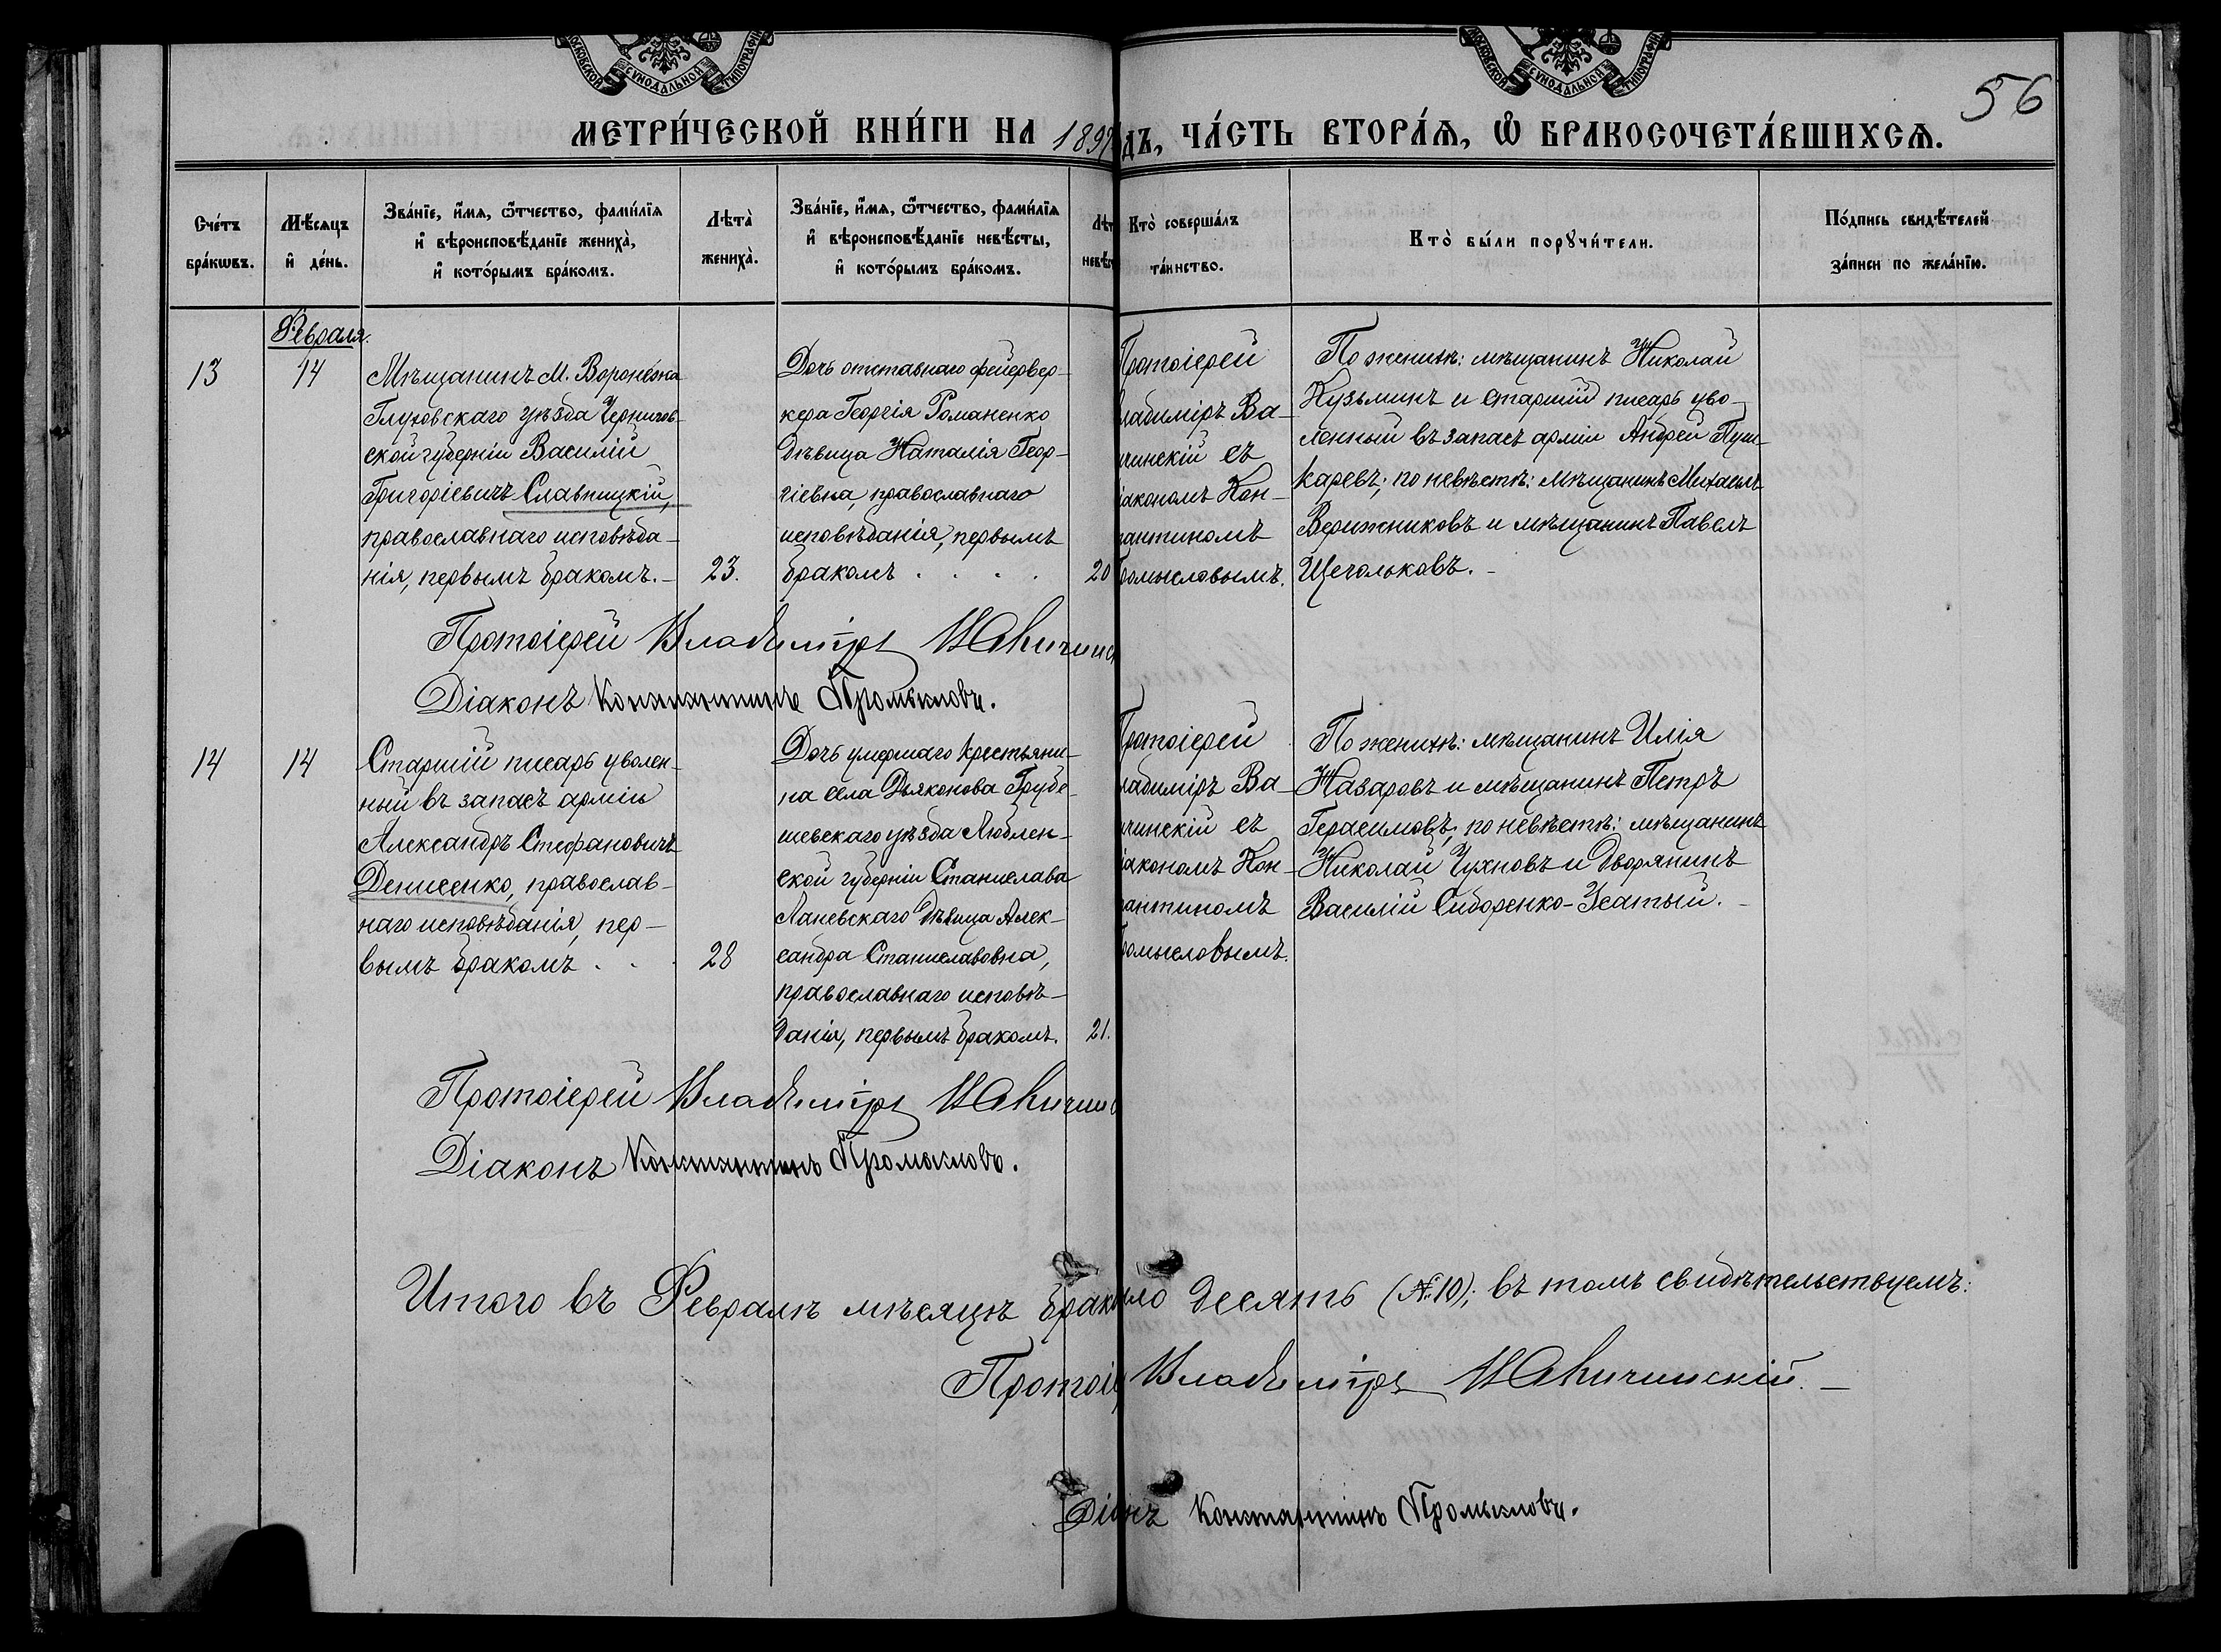 МОСКОВСКОЙ СѴНОДАЛЬНОЙ ТИПОГРАФІИ
МОСКОВСКОЙ СѴНОДАЛЬНОЙ ТИПОГРАФІИ
56
МЕТРИ́ЧЕСКОЙ КНИ́ГИ НА 1897
ДЪ, ЧА́СТЬ ВТОРА́Ѧ, Ѡ҆ БРАКОСОЧЕТА́ВШИХСѦ.
Сче́тъ бра́кѡвъ.
Мѣ́сяцъ и҆ де́нь.
Зва́нїе, и҆́мя, ѻ҆́тчество, фами́лїя
и҆ вѣроисповѣ́данїе жениха̀,
и҆ кото́рымъ бра́комъ.
Лѣта̀ жениха̀.
Зва́нїе, и҆́мя, ѻ҆́тчество, фами́лїя
и҆ вѣроисповѣ́данїе невѣ́сты,
и҆ кото́рымъ бра́комъ.
Лѣт невѣс
Кто̀ соверша́лъ
та́инство.
Кто̀ бы́ли порꙋчи́тели.
По́дпись свидѣ́телей
за́писи по жела́нїю.
Февраля.
13
14
Мѣщанинъ М. Воронежа
Глуховскаго уѣзда Чернигов-
ской губерніи Василій
Григоріевичъ Славницкій,
православнаго исповѣда-
нія, первымъ бракомъ.-
23.
Дочь отставнаго фейервер-
кера Георгія Романенко
дѣвица Наталія Геор-
гіевна, православнаго
исповѣданія, первымъ
бракомъ . . . .
20
Протоіерей
ладиміръ Ва-
чинскій съ
іакономъ Кон-
антиномъ
ромысловымъ.
По женихѣ: мѣщанинъ Николай
Кузьминъ и старшій писарь уво-
ленный въ запасъ арміи Андрей Пуш-
каревъ; по невѣстѣ: мѣщанинъ Михаилъ
Верижниковъ и мѣщанинъ Павелъ
Щегольковъ. -
Протоіерей Владиміръ
Діаконъ Константинъ Промысловъ.
14
14
Старшій писарь уволен-
ный въ запасъ арміи
Александръ Стефановичъ
Денисенко, православ-
наго исповѣданія, пер-
вымъ бракомъ . . .
28
Дочь умершаго крестьяни-
на села Дьяконова Грубе-
шевскаго уѣзда Люблен-
ской губерніи Станислава
Ланевскаго дѣвица Алек-
сандра Станиславовна,
православнаго исповѣ-
данія, первымъ бракомъ.
21.
Протоіерей
ладиміръ Ва-
чинскій съ
іакономъ Кон-
антиномъ
ромысловымъ.
По женихѣ: мѣщанинъ Илія
Назаровъ и мѣщанинъ Петръ
Герасимовъ; по невѣстѣ: мѣщанинъ
Николай Чухновъ и дворянинъ
Василій Сидоренко-Усатый. -
Протоіерей Владиміръ
Діаконъ Константинъ Промысловъ.
Итого въ Февралѣ мѣсяцѣ брак ыло десять (№ 10); въ томъ свидѣтельствуемъ:
Протоіе Владиміръ
Діа нъ Константинъ Промысловъ.